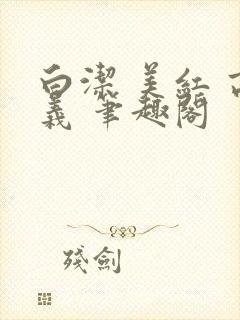 白潔 美紅 
義 筆趣閣
殘劍